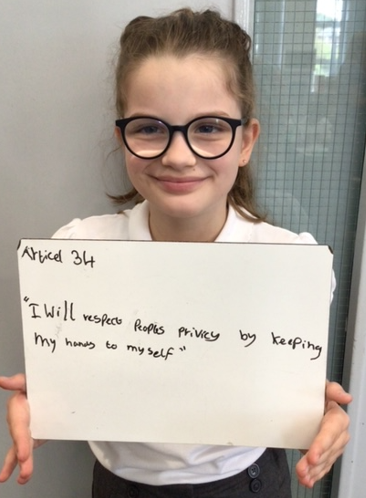 Articel 34
"I Will respect Peoples privicy by keeping
my hands to myself"